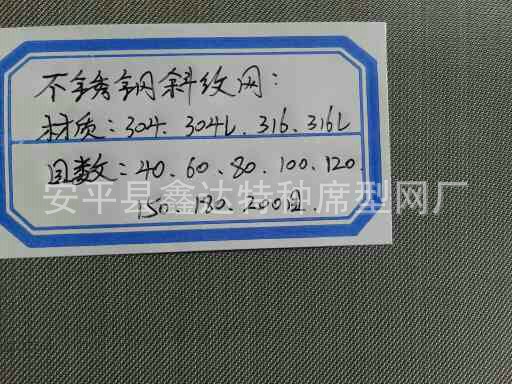 不锈钢斜纹网：
材质：304、304L、316、316L
目数：40、60、80、100、120、
安平县鑫达特种席型网厂
150、180、200目.